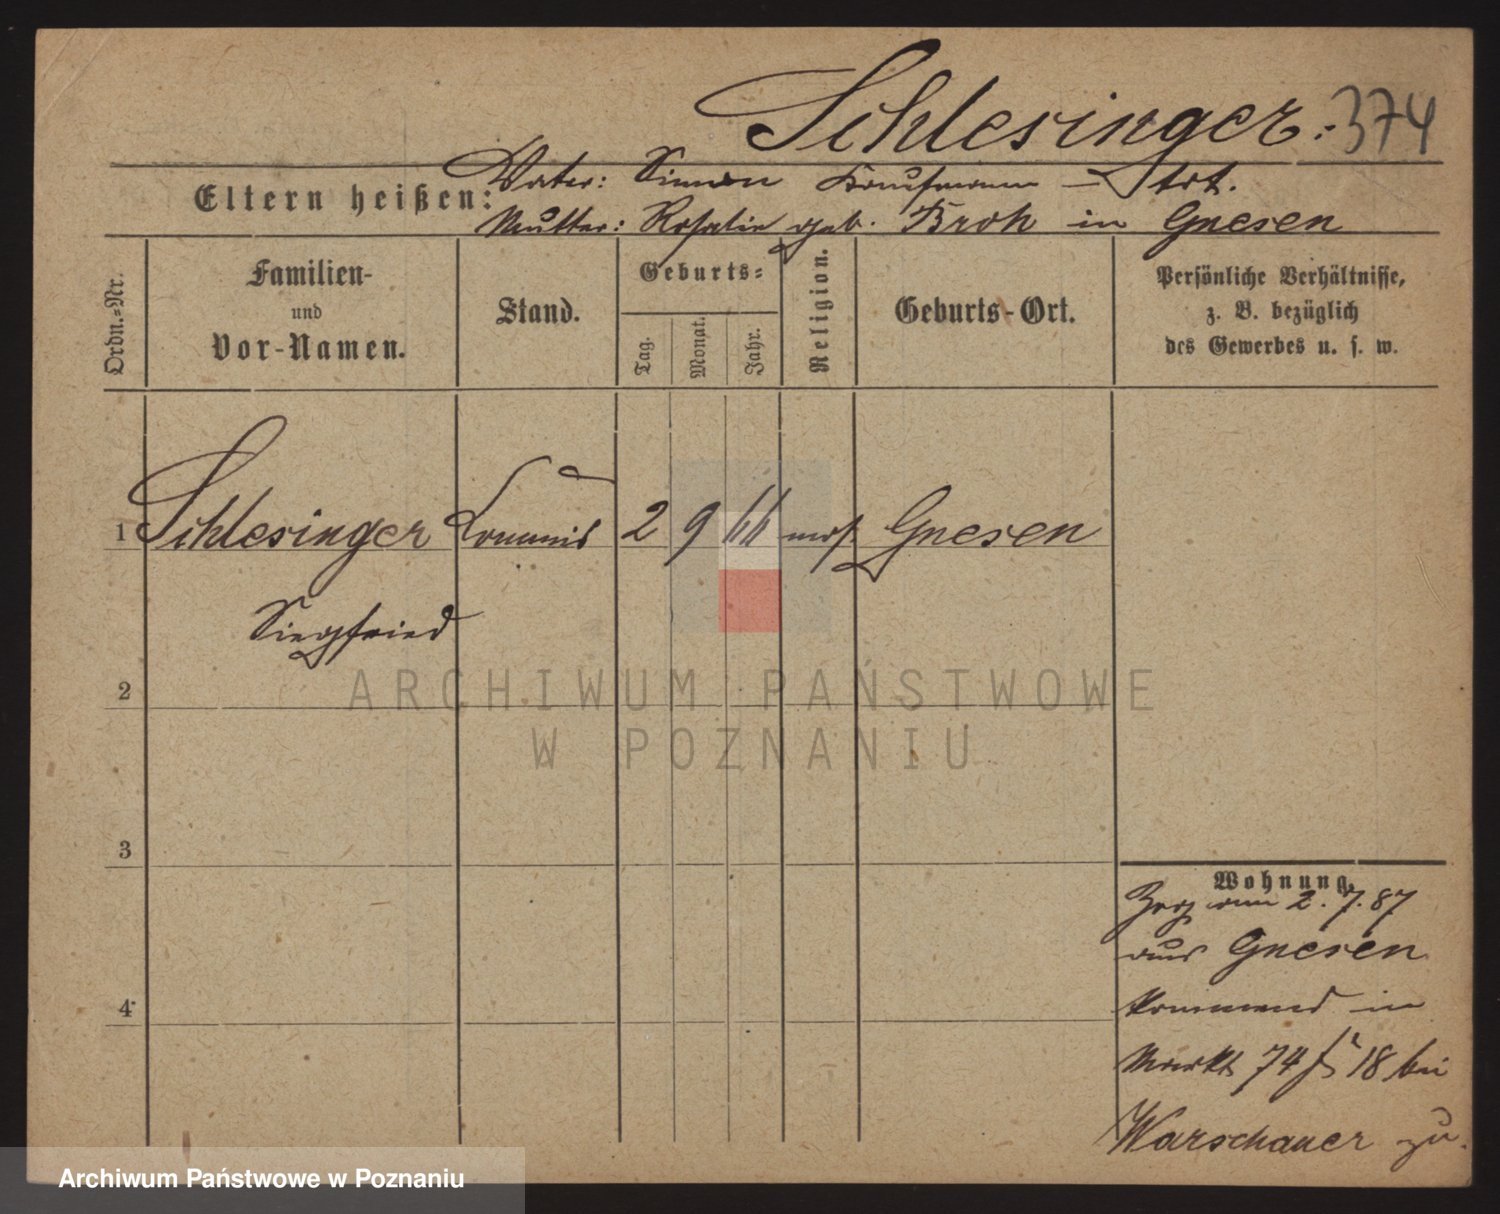 Schlesinger. 374
Eltern heißen: Vater: Simon Kaufmann — tot.
Mutter: Rosalie geb. Broh in Gnesen
Ordn.=Nr.
Familien-
und
Vor-Namen.
Stand.
Geburts=
Tag.
Monat.
Jahr.
Religion.
Geburts-Ort.
Persönliche Verhältnisse,
z. B. bezüglich
des Gewerbes u. s. w.
1 Schlesinger Commis 2 9 66 mos Gnesen
Siegfried
2
3
4
Wohnung.
Zog am 2.7.87
aus Gnesen
kommend in
Markt 74 18 bei
Warschauer zu.
ARCHIWUM PAŃSTWOWE
W POZNANIU
Archiwum Państwowe w Poznaniu